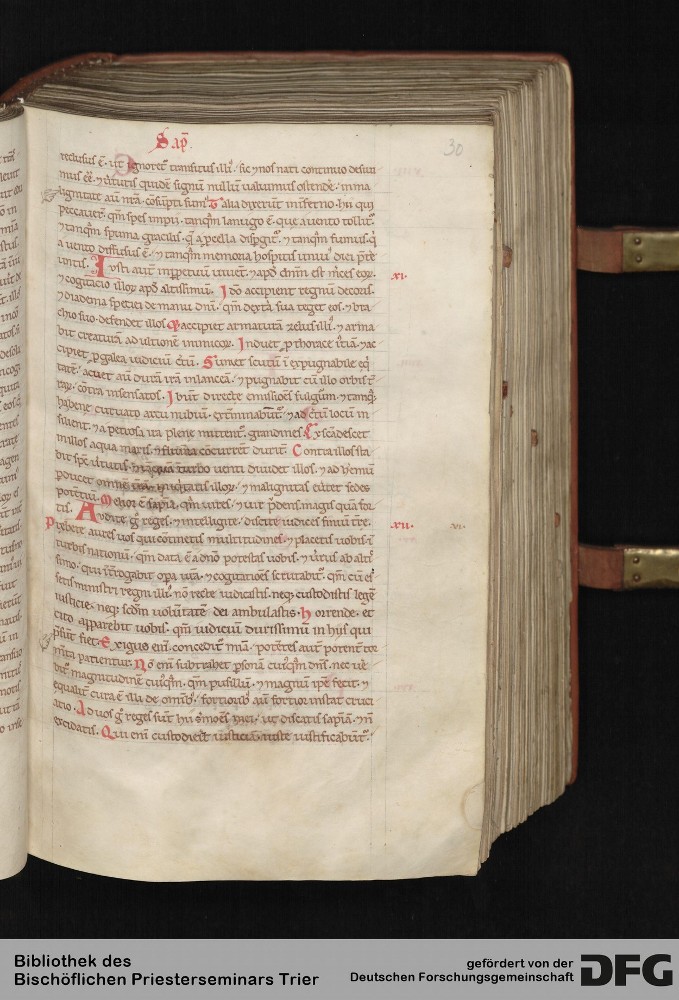 Sap̄.
30
reclusus ē. ut ignoret᷑ transitus illi᷒. sic ⁊ nos nati continuo desiui
mus eē. ⁊ uirtutis quidē signum nullū ualuimus ostende᷑. in ma
lignitate aut̄ nr̄a. cōsūpti sum᷒. Talia dixerunt in inferno. hii qui
peccauer̄t. qm̄ spes impii. tanqͣm lanugo ē. que a uento tollit᷑.
⁊ tanqͣm spuma gracilis. q̄ a ꝓcella disꝑgit᷑. ⁊ tanqͣm fumus. qͥ
a uento diffusus ē. ⁊ tanqͣm memoria hospitis unius diei p̄te
untis. Iusti aut̄ in ꝑpetuum uiuent. ⁊ apd̄ dn̄m est m̄ces eoꝝ.
XI.
⁊ cogitacio illoꝝ apd̄ altissimum. Ido accipient regnū decoris.
⁊ diadema speciei de manu dn̄i. qm̄ dext̄a sua teget eos. ⁊ br̄a
chio suo defendet illos. accipiet armaturā zelus illi᷒. ⁊ arma
bit creaturā ad ultionē inimicoꝝ. Induet ꝓ thorace iustitiā. ⁊ ac
cipiet ꝓ galea iudicium certū. Sumet scutū inexpugnabile eq̄
tatē. acuet aut̄ durā irā in lancea. ⁊ pugnabit cū illo orbis t᷑
raꝝ. cont̄a insensatos. Ibunt directe emissiōes fulguꝝ. ⁊ tamqͣ
a bene curuato arcu nubium. ext̄minabunt᷑. ⁊ ad certū locū in
silient. ⁊ a petrosa ira plene mittent᷑ grandines. Excādescet
in illos aqua maris. ⁊ flumina cōcurrēt durit̄. Contra illos sta
bit sp̄c uirtutis. ⁊ tanquā turbo uenti diuidet illos. ⁊ ad h̄emū
ꝑducet omnē t᷑ram iniquitatis illoꝝ. ⁊ malignitas eu᷑tet sedes
potentiū. Melior ē sapīa qm̄ uires. ⁊ uir prudens magis quā for
tis. Audite g̊ reges. ⁊ intelligite. discite iudices finiū tr̄e.
XII.
VI.
Prebete aures uos qui cōtinetis multitudines. ⁊ placetis uobis ī
turbis nationū. qm̄ data ē a dn̄o potestas uobis. ⁊ uirtus ab alti
simo. qui int̄rogabit oꝑa ur̄a. ⁊ cogitatiōes scrutabit᷑. qm̄ cū es
setis ministri regni illi᷒. nō recte iudicastis. neqꝫ custodistis legē
iusticie. neqꝫ scdm̄ uolūtatē dei ambulastis. Horrende. et
cito apparebit uobis. qm̄ iudiciū durissimū in hijs qui
p̄sunt fiet. Exiguo enī. concedit᷑ mīa. potētes aut̄ potent᷑ tor
m̄ta patientur. Nō enī subtrahet ꝑsonā cuiꝰqͣm dn̄s. nec ue
bit᷑ magnitudinē cuiꝰqͣm. qm̄ pusillū. ⁊ magnū ip̄e fecit. ⁊
equalit᷑ cura ē illi de omībꝫ. fortiorībꝫ aut̄ fortior instat cruci
atio. Ad uos g̊ reges sūt hii s̄mōes mei. ut discatis sapīam. ⁊ nō
excidatis. Qui enī custodierīt iusticiā iuste iustificabunt᷑.
Bibliothek des
Bischöflichen Priesterseminars Trier
gefördert von der
Deutschen Forschungsgemeinschaft
DFG